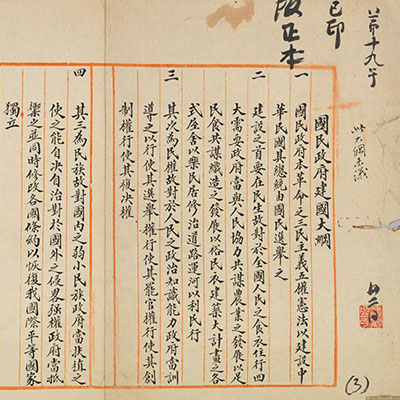 已印
版正本
國民政府建國大綱
一 國民政府本革命之三民主義五權憲法以建設中
華民國其總統由國民選舉之
二 建設之首要在民生故對於全國人民之食衣住行四
大需要政府當與人民協力共謀農業之發展以足
民食共謀織造之發展以裕民衣建築大計畫之各
式屋舍以樂民居修治道路運河以利民行
三 其次為民權故對於人民之政治知識能力政府當訓
導之以行使其選舉權行使其罷官權行使其創
制權行使其複决權
四 其三為民族故對國內之弱小民族政府當扶植之
使之能自决自治對於國外之侵畧强權政府當抵
禦之並同時修改各國條約以恢復我國際平等國家
獨立
(3)